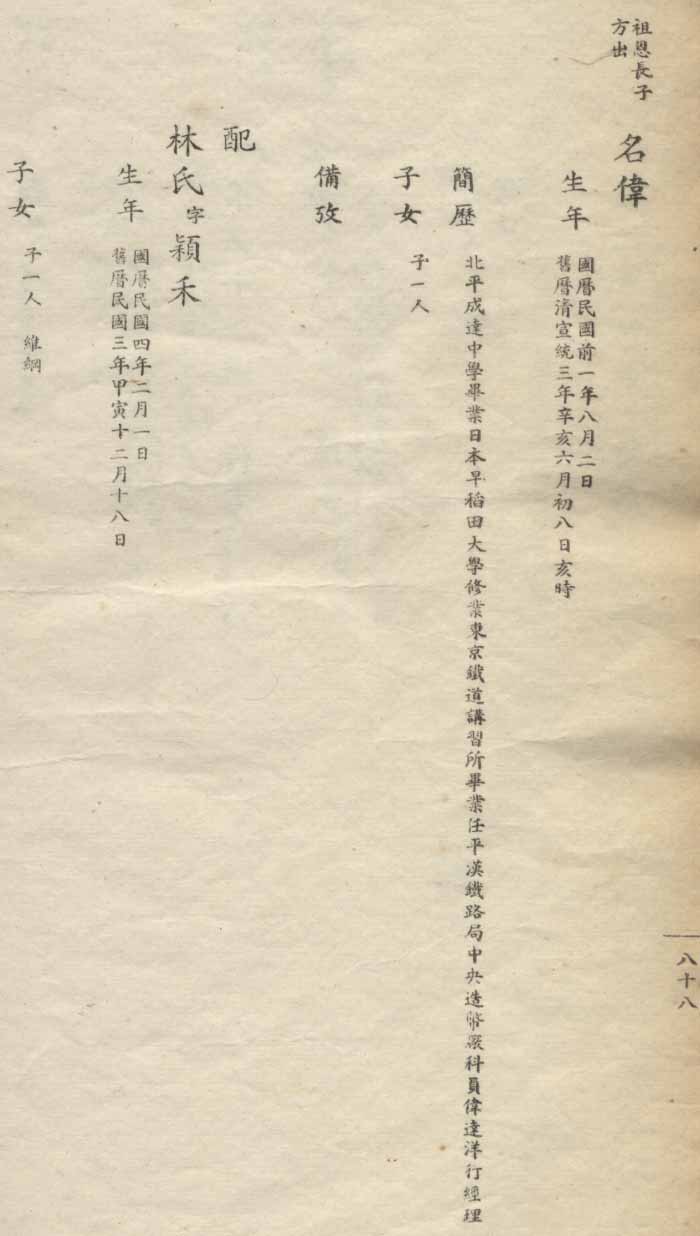 祖恩長子
方出
名偉
生年
國曆民國前一年八月二日
舊曆清宣統三年辛亥六月初八日亥時
簡歷
北平成達中學畢業日本早稻田大學修業東京鐵道講習所畢業任平漢鐵路局中央造幣廠科員偉達洋行經理
子女
子一人
備攷
配
林氏字穎禾
生年
國曆民國四年二月一日
舊曆民國三年甲寅十二月十八日
子女
子一人 維綱
八十八